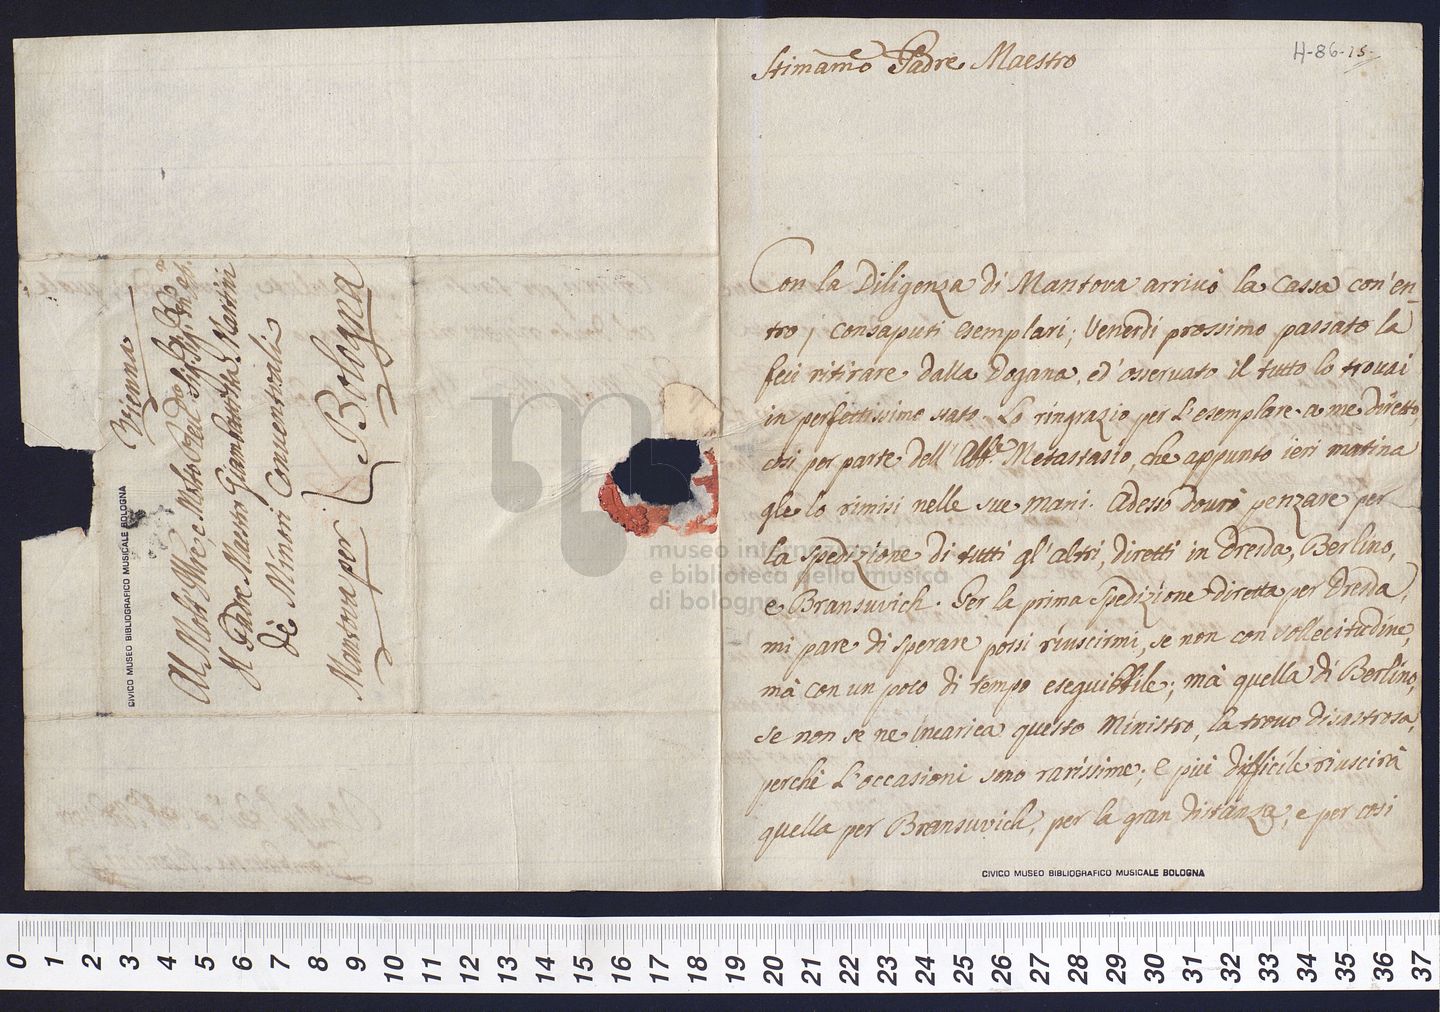 Vienna
Al Molto Rde, e Molto Revdo Sigr Sigr
Il Padre Maestro Giambattista Martini
dè Minori Conventuali
Mantova per Bologna
CIVICO MUSEO BIBLIOGRAFICO MUSICALE BOLOGNA
H-86-15
Stimamo Padre Maestro
Con la Diligenza di Mantova arrivò la Cassa con'en-
tro i consaputi esemplari; Venerdi prossimo passato la
feci ritirare dalla Dogana, ed'osservato il tutto lo trovai
in perfettissimo stato. Lo ringrazio per l'esemplare a me diretto,
cosi per parte dell' Abbe Metastasio, che appunto ieri matina
glelo rimisi nelle sue mani. Adesso dovrò penzare per
la spedizione di tutti gl'altri, diretti in Dresda, Berlino,
e Bransuvich. Per la prima spedizione diretta per Dresda,
mi pare di sperare possi riuscirmi, se non con sollecitudine,
mà con un poco di tempo eseguibbile; mà quella di Berlino,
se non se ne incarica questo Ministro, la trovo disastrosa,
perchè l'occasioni sono rarissime; e più difficile riuscirà
quella per Bransuvich, per la gran distanza, e per cosi
museo internazionale
e biblioteca della musica
di bologna
CIVICO MUSEO BIBLIOGRAFICO MUSICALE BOLOGNA
0 1 2 3 4 5 6 7 8 9 10 11 12 13 14 15 16 17 18 19 20 21 22 23 24 25 26 27 28 29 30 31 32 33 34 35 36 37